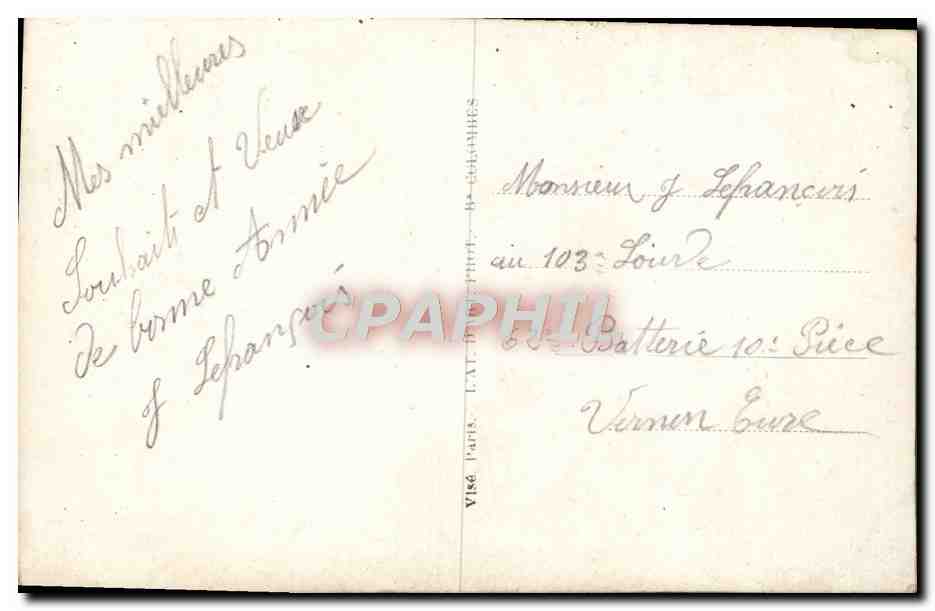 Mes meilleures
Souhaits et Veux
de bonne Année
J Lefrançois
Visé. Paris. PHOT. COLOMBES
CPAPHIL
Monsieur J Lefrançois
au 103e Lourde
Batterie 10e Pièce
Vernon Eure